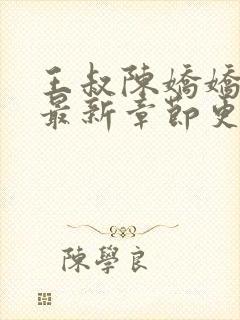 王叔陳嬌嬌
最新章節史
陳學良